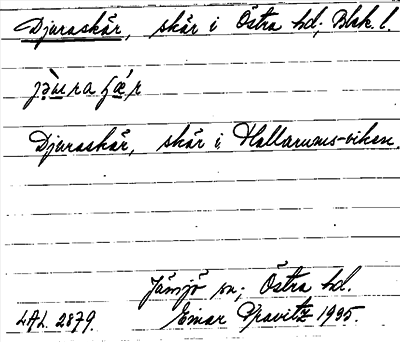 Djuraskär, skär i Östra hd; Blek. l.
Djuraskär, skär i Hallarums-viken.
Jämjö sn; Östra hd.
LAL. 2879. Einar Pravitz 1935.